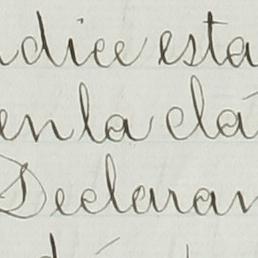 dice esta
en la clá
Declaran